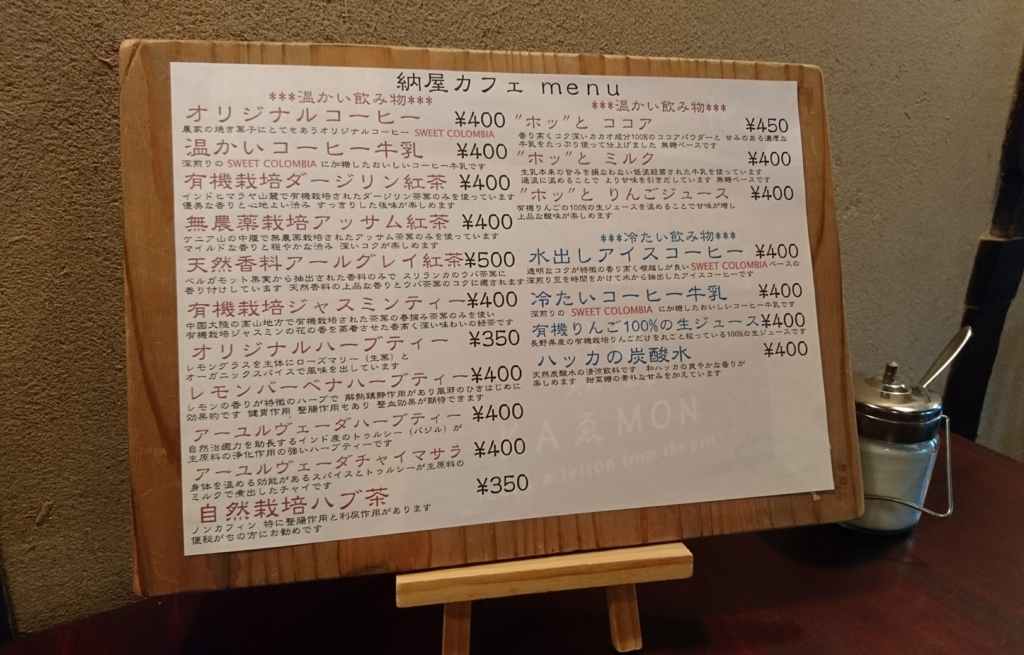 納屋カフェ menu
***温かい飲み物***
オリジナルコーヒー ¥400
農家の焼き菓子にとてもあうオリジナルコーヒー SWEET COLOMBIA
温かいコーヒー牛乳 ¥400
深煎りの SWEET COLOMBIA に加糖したおいしいコーヒー牛乳です
有機栽培ダージリン紅茶 ¥400
インドヒマラヤ山麓で有機栽培されたダージリン茶葉のみを使っています
優美な香りと心地よい渋み すっきりした後味が楽しめます
無農薬栽培アッサム紅茶 ¥400
ケニア山の中腹で無農薬栽培されたアッサム茶葉のみを使っています
マイルドな香りと穏やかな渋み 深いコクが楽しめます
天然香料アールグレイ紅茶¥500
ベルガモット果実から抽出された香料のみで スリランカのウバ茶葉に
香り付けしています 天然香料の上品な香りとウバ茶葉のコクに癒されます
有機栽培ジャスミンティー¥400
中国大陸の高山地方で有機栽培された茶葉の春摘み茶葉のみを使い
有機栽培ジャスミンの花の香を蒸着させた香高く深い味わいの緑茶です
オリジナルハーブティー ¥350
レモングラスを主体にローズマリー（生葉）と
オーガニックスパイスで風味を出しています
レモンバーベナハーブティー¥400
レモンの香りが特徴のハーブで 解熱鎮静作用があり風邪のひきはじめに
効果的です 健胃作用 整腸作用もあり 整血効果が期待できます
アーユルヴェーダハーブティー ¥400
自然治癒力を助長するインド産のトゥルシー（バジル）が
主原料の浄化作用の強いハーブティーです
アーユルヴェーダチャイマサラ ¥400
身体を温める効能があるスパイスとトゥルシーが主原料の
ミルクで煮出したチャイです
自然栽培ハブ茶 ¥350
ノンカフィン 特に整腸作用と利尿作用があります
便秘がちの方にお勧めです
***温かい飲み物***
"ホッ"と ココア ¥450
香り高くコク深いカカオ成分100%のココアパウダーと 甘みのある濃厚な
牛乳をたっぷり使って仕上げました 無糖ベースです
"ホッ"と ミルク ¥400
生乳本来の旨みを損なわない低温殺菌された牛乳を使っています
適温に温めることで より甘味を引きだしています 無糖ベースです
"ホッ"と りんごジュース ¥400
有機りんごの100%の生ジュースを温めることで甘味が増し
上品な酸味が楽しめます
***冷たい飲み物***
水出しアイスコーヒー ¥400
透明なコクが特徴の香り高く喉越しが良い SWEET COLOMBIAベースの
深煎り豆を時間をかけて水から抽出したアイスコーヒーです
冷たいコーヒー牛乳 ¥400
深煎りの SWEET COLOMBIA に加糖したおいしいコーヒー牛乳です
有機りんご100%の生ジュース¥400
長野県産の有機栽培りんごだけを丸ごと絞っている100%の生ジュースです
ハッカの炭酸水 ¥400
天然炭酸水の清涼飲料です 和ハッカの爽やかな香りが
楽しめます 甜菜糖の素朴な甘みを加えています
KAゑMON
a lerson from the past